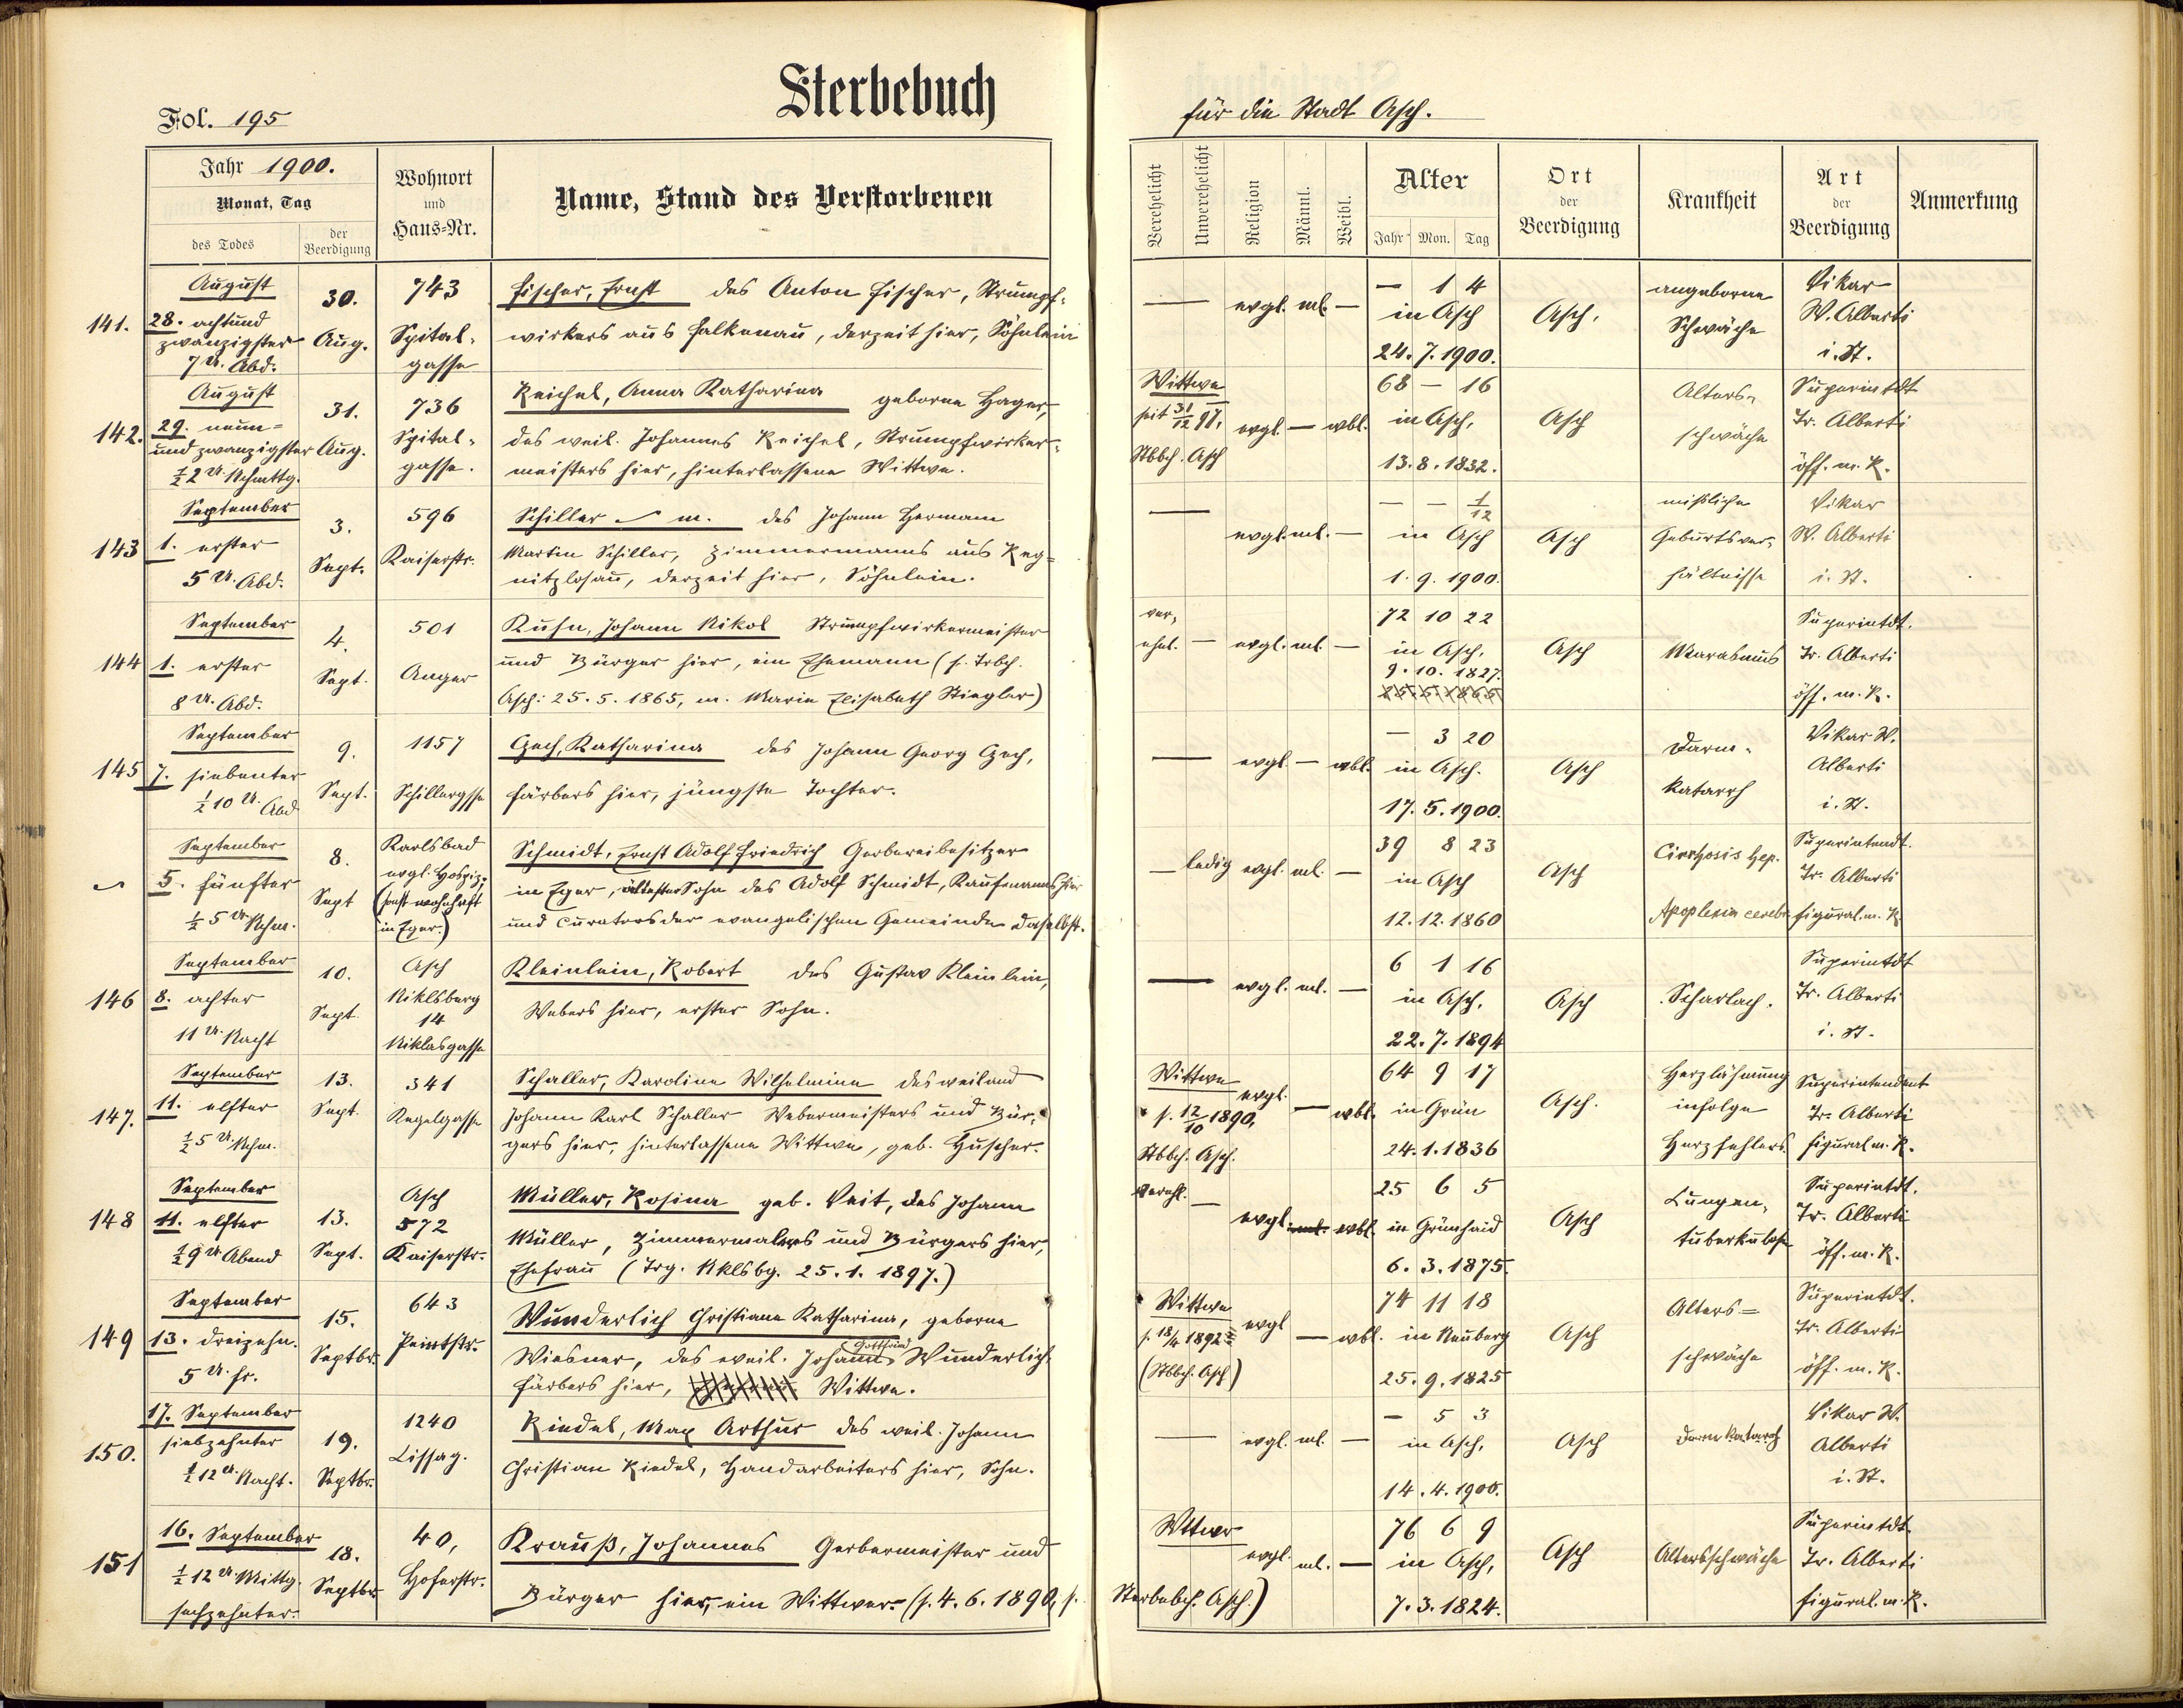 Sterbebuch
für die Stadt Asch.
Fol. 195
Jahr 1900.
Monat, Tag
des Todes
der Beerdigung
Wohnort
und
Haus-Nr.
Name, Stand des Verstorbenen
Verehelicht
Unverehelicht
Religion
Männl.
Weibl.
Alter
Jahr
Mon.
Tag
Ort
der
Beerdigung
Krankheit
Art
der
Beerdigung
Anmerkung
141.
August
28. achtund
zwanzigster
7 U. Abd.
30.
Aug.
743
Spital-
gasse
Fischer, Ernst des Anton Fischer, Strumpf-
wirkers aus Falkenau, derzeit hier, Söhnlein
—
evgl. ml. —
— 1 4
in Asch
24. 7. 1900.
Asch.
angeborne
Schwäche
Vikar
W. Alberti
i. St.
142.
August
29. neun-
und zwanzigster
½2 U. Nchmttg.
31.
Aug.
736
Spital-
gasse.
Reichel, Anna Katharina geborne Hager,
des weil. Johannes Reichel, Strumpfwirker-
meisters hier, hinterlassene Wittwe.
Wittwe
seit 31/12 97.
Stbbch. Asch
evgl. — wbl.
68 — 16
in Asch,
13. 8. 1832.
Asch
Alters-
schwäche
Superintdt
Tr. Alberti
öff. m. R.
143
September
1. erster
5 U. Abd.
3.
Sept.
596
Kaiserstr.
Schiller m. des Johann Hermann
Martin Schiller, Zimmermanns aus Reg-
nitzlosau, derzeit hier, Söhnlein.
—
evgl. ml. —
— — 1/12
in Asch
1. 9. 1900.
Asch
mißliche
Geburtsver-
hältnisse
Vikar
W. Alberti
i. St.
144
September
1. erster
8 U. Abd.
4.
Sept.
501
Anger
Kuhn, Johann Nikol Strumpfwirkermeister
und Bürger hier, ein Ehemann (s. Trbch.
Asch: 25. 5. 1865, m. Maria Elisabeth Stiegler)
ver-
ehel. — evgl. ml. —
72 10 22
in Asch,
9. 10. 1827.
Asch
Marasmus
Superintdt.
Tr. Alberti
öff. m. R.
145
September
7. siebenter
½10 U. Abd
9.
Sept.
1157
Schillergsse
Gech, Katharina des Johann Georg Gech,
Färbers hier, jüngste Tochter.
—
evgl — wbl.
— 3 20
in Asch.
17. 5. 1900.
Asch
Darm-
katarrh
Vikar W.
Alberti
i. St.
September
5. fünfter
½5 U. Nchm.
8.
Sept
Karlsbad
evgl. Hospiz,
(sonst wohnhaft
in Eger.)
Schmidt, Ernst Adolf Friedrich Gerbereibesitzer
in Eger, ältester Sohn des Adolf Schmidt, Kaufmanns hier
und Curators der evangelischen Gemeinde daselbst.
— ledig evgl. ml. —
39 8 23
in Asch
12. 12. 1860
Asch
Cirrhosis hep.
Apoplexia cerebr.
Superintendt.
Tr. Alberti
figural. m. R
146
September
8. achter
11 U. Nacht
10.
Sept.
Asch
Niklsberg
14
Niklasgasse
Kleinlein, Robert des Gustav Kleinlein,
Webers hier, erster Sohn.
—
evgl. ml. —
6 1 16
in Asch,
22. 7. 1894
Asch
Scharlach.
Superintdt
Tr. Alberti
i. St.
147.
September
11. elfter
½5 U. Nchm.
13.
Sept.
341
Kegelgasse
Schaller, Karoline Wilhelmine des weiland
Johann Karl Schaller Webermeisters und Bür-
gers hier, hinterlassene Wittwe, geb. Huscher.
Wittwe
s. 12/10 1890,
Stbbch. Asch.
evgl. — wbl.
64 9 17
in Grün
24. 1. 1836
Asch.
Herzlähmung
infolge
Herzfehlers.
Superintendent
Tr. Alberti
figural m. R.
148
September
11. elfter
½9 U Abend
13.
Sept.
Asch
572
Kaiserstr.
Müller, Rosina geb. Veit, des Johann
Müller, Zimmermalers und Bürgers hier,
Ehefrau (Trg. Nklsbg. 25. 1. 1897.)
Verehl. —
evgl. ml. wbl.
25 6 5
in Grünhaid
6. 3. 1875.
Asch
Lungen-
tuberkulose
Superintdt.
Tr. Alberti
öff. m. R.
149
September
13. dreizehn.
5 U. fr.
15.
Septbr.
643
Peintstr.
Wunderlich Christiana Katharina, geborne
Wiesner, des weil. Johann Gottfried Wunderlich
Färbers hier, Wittwe.
Wittwe
s. 18/4 1892
(Stbbch. Asch)
evgl — wbl.
74 11 18
in Neuberg
25. 9. 1825
Asch
Alters-
schwäche
Superintdt.
Tr. Alberti
öff. m. R.
150.
17. September
siebzehnter
½12 U. Nacht.
19.
Septbr.
1240
Lissag.
Riedel, Max Arthur des weil. Johann
Christian Riedel, Handarbeiters hier, Sohn.
—
evgl. ml. —
— 5 3
in Asch,
14. 4. 1900.
Asch
Darmkatarrh
Vikar W.
Alberti
i. St.
151
16. September
½12 U. Mittg.
sechzehnter.
18.
Septbr.
40,
Hoferstr.
Krauß, Johannes Gerbermeister und
Bürger hier, ein Wittwer (s. 4. 6. 1890, s.
Sterbebch. Asch.)
Wttwr
evgl. ml. —
76 6 9
in Asch,
7. 3. 1824.
Asch
Altersschwäche
Superintdt.
Tr. Alberti
figural. m. R.